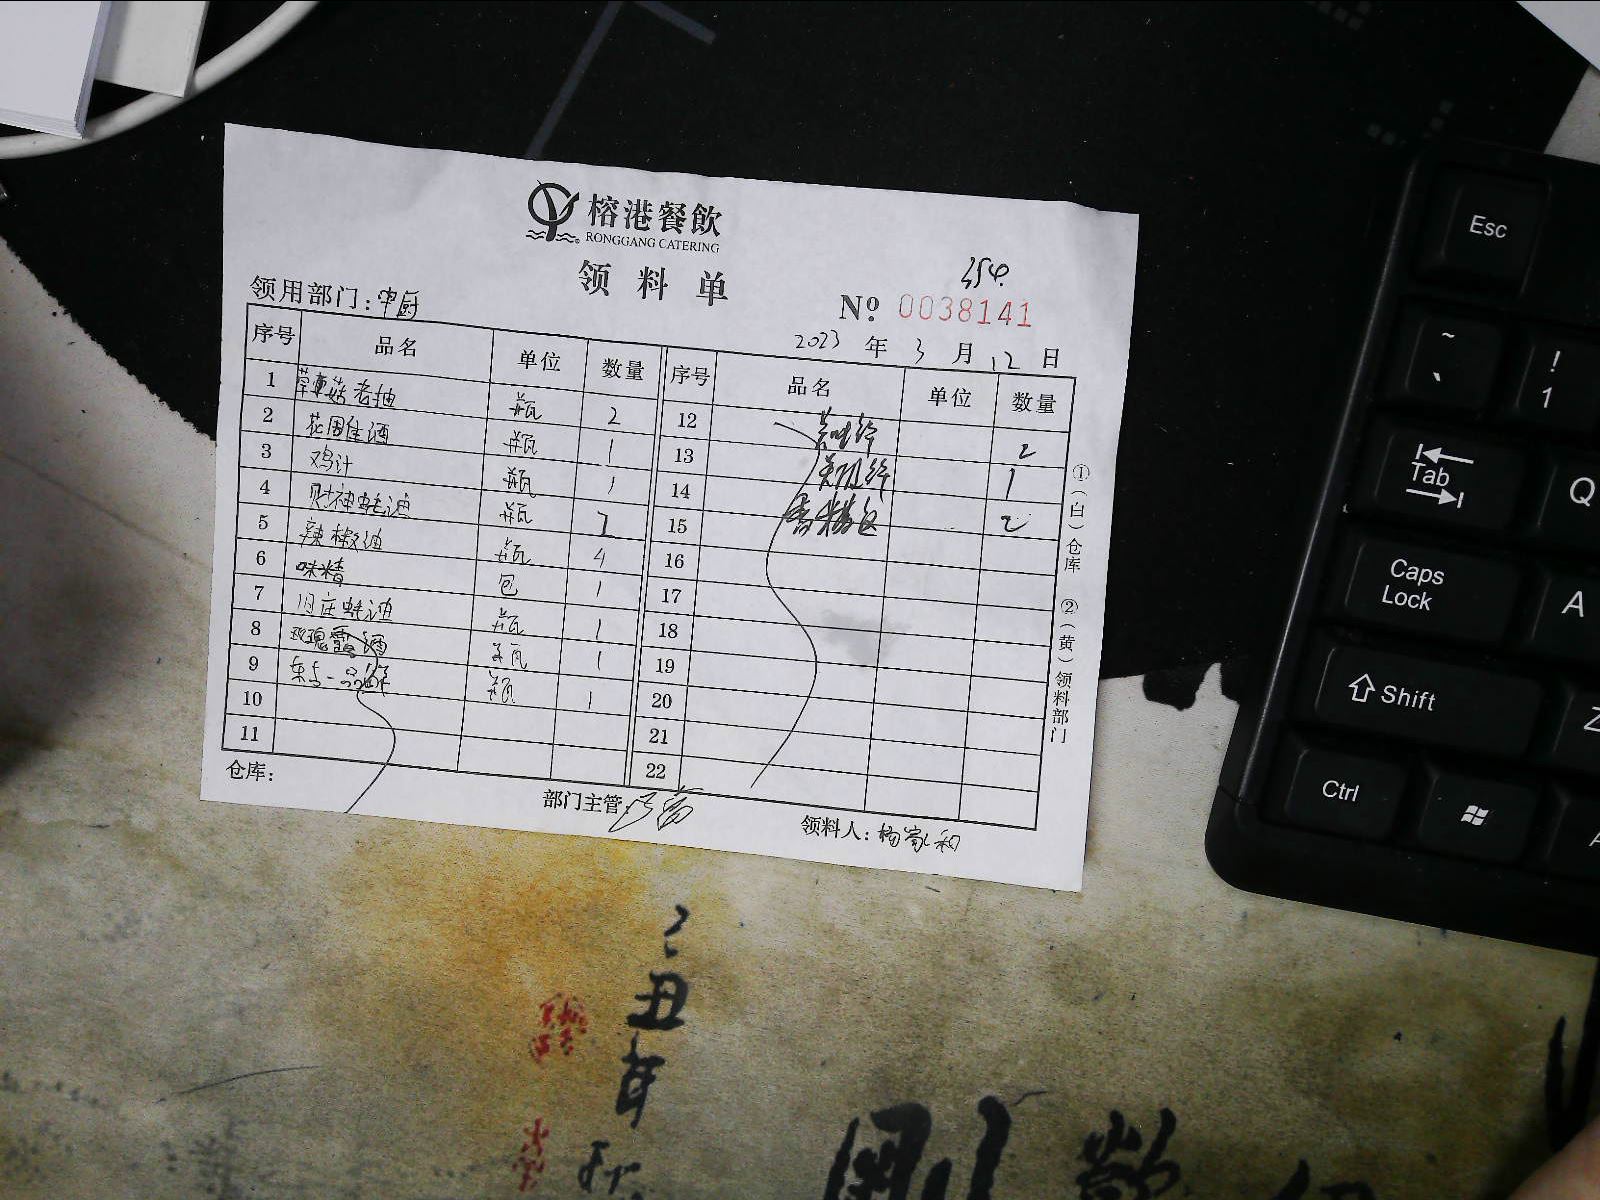 榕港餐飲
RONGGANG CATERING
领料单
领用部门: 中厨
№ 0038141
2023 年 3 月 12 日
序号 品名 单位 数量 序号 品名 单位 数量
1 草菇老抽 瓶 2 12 2
2 花雕酒 瓶 1 13 1
3 鸡汁 瓶 1 14
4 财神蚝油 瓶 15 2
5 辣椒油 瓶 4 16
6 味精 包 1 17
7 旧庄蚝油 瓶 1 18
8 玫瑰露酒 瓶 1 19
9 东古一品鲜 瓶 1 20
10 21
11 22
仓库:
部门主管
领料人: 杨家和
①(白)仓库 ②(黄)领料部门
Esc
~ ! 1
Tab Q
Caps Lock A
Shift Z
Ctrl
己丑年